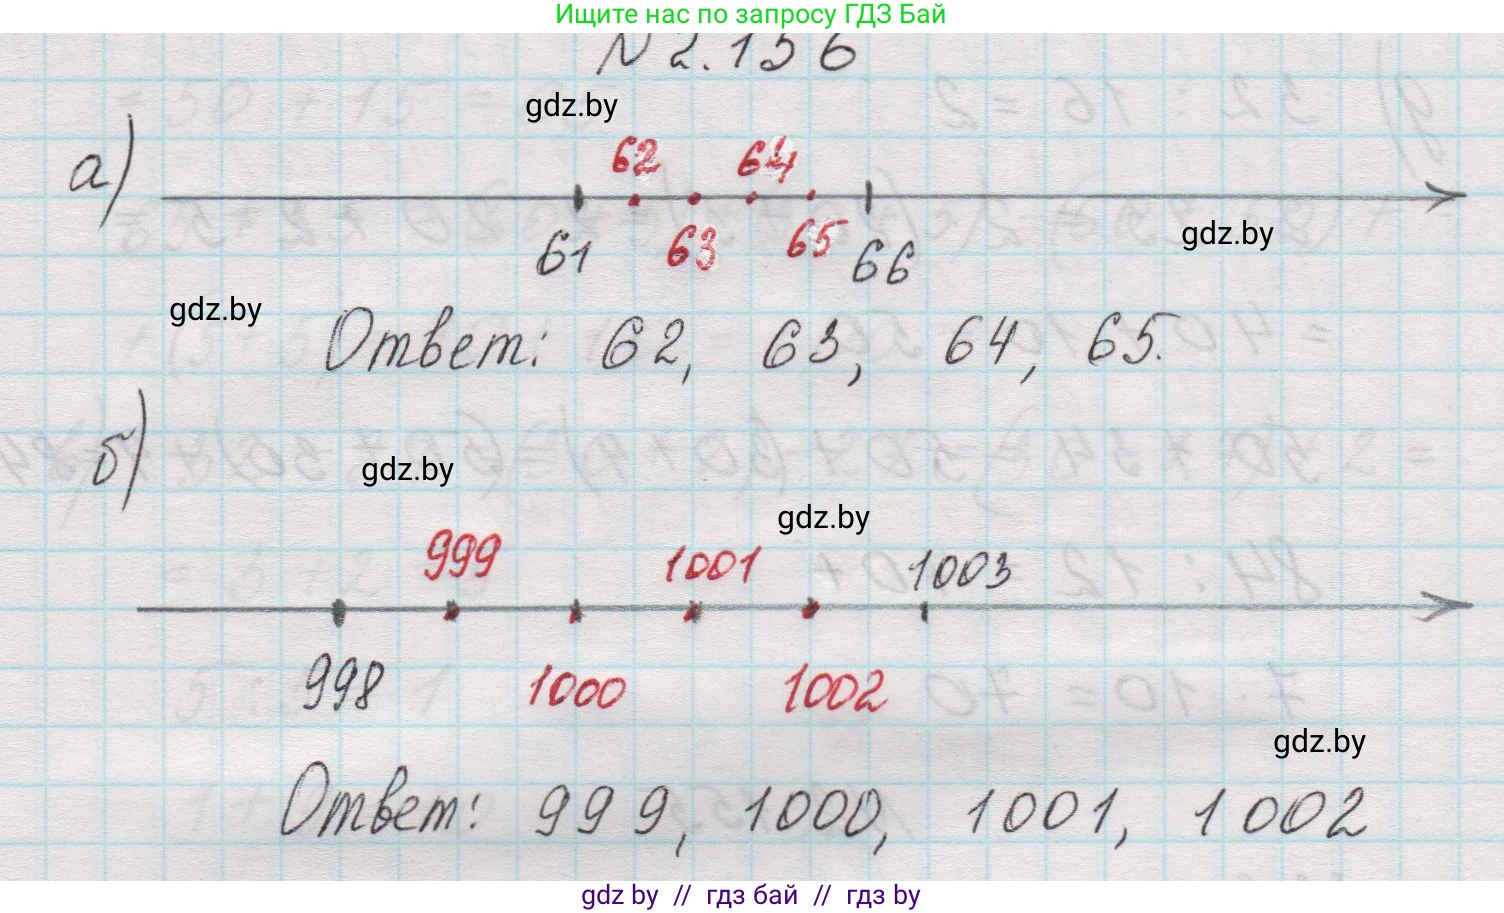 Ищите нас по запросу ГДЗ Бай
N 2.156
gdz.by
а)
62 64
61 63 65 66
gdz.by
gdz.by
Ответ: 62, 63, 64, 65.
б)
gdz.by
gdz.by
999 1001 1003
998 1000 1002
gdz.by
Ответ: 999, 1000, 1001, 1002
gdz by // гдз бай // гдз by